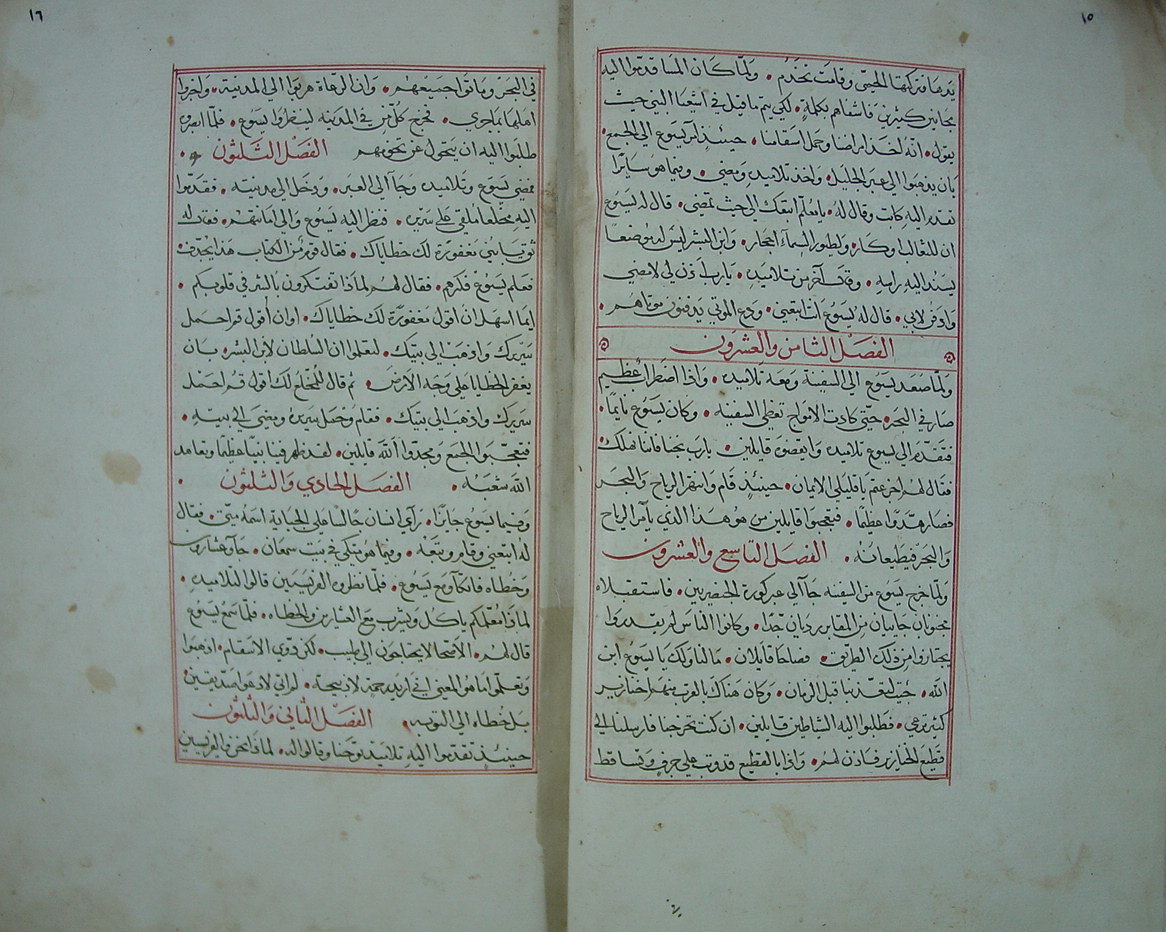 ١٥
يدها فتركتها الحمى وقامت تخدم • ولما كان المسا قدموا اليه
مجانين كثيرين فاشفاهم بكلمة • لكي يتم ما قيل في اشعيا النبي حيث
يقول • انه اخذ امراضنا وحمل اسقامنا • حينيذ امر يسوع الى الجمع
بان يذهبوا الى عبر الجليل • واخذ تلاميذه ومضى • وفيما هو سايرا
تقدم اليه كاتب وقال له • يا معلم اتبعك الى حيث تمضي • قال له يسوع
ان للثعالب اوكار • ولطيور السمآء احجار • وابن البشر ليس له موضعا
يسند اليه راسه • وقال آخر من تلاميذه • يا رب اذن لي لامضي
وادفن لابي • قال له يسوع انت اتبعني • ودع الموتى يدفنون موتاهم •
الفصل الثامن والعشرون
ولما صعد يسوع الى السفينة ومعه تلاميذه • واذا اضطراب عظيم
صار في البحر • حتى كادت الامواج تغطي السفينة • وكان يسوع نايما •
فتقدم الى يسوع تلاميذه وايقضوه قايلين • يا رب نجنا فاننا نهلك
فقال لهم اجزعتم يا قليلي الايمان • حينيذ قام وانتهر الرياح والبحر
فصار هدوا عظيما • فتعجبوا قايلين من هو هذا الذي يامر الرياح
والبحر فيطيعانه • الفصل التاسع والعشرون
ولما خرج يسوع من السفينة جآ الى عبر كورة الجرجسيين • فاستقبلاه
مجنونان جايبان من المقابر رديان جدا • وكانوا الناس لم يقدروا
يجتازوا من ذلك الطريق • فصاحا قايلان • ما لنا ولك يا يسوع ابن
الله • جيت لتعذبنا قبل الزمان • وكان هناك بالقرب منهم خنازير
كثير ترعى • فطلبوا اليه الشياطين قايلين • ان كنت تخرجنا فارسلنا الى
قطيع الخنازير فاذن لهم • واذا بالقطيع قد وثب على جرف وتساقط
١٦
في البحر وماتوا جميعهم • وان الرعاة هربوا الى المدينة • واخبروا
اهلها بما جرى • فخرج كل من في المدينة لينظروا يسوع • فلما ابصروه
طلبوا اليه ان يتحول عن تخومهم الفصل الثلثون •
فمضى يسوع وتلاميذه وجآ الى العبر • ودخل الى مدينته • فقدموا
اليه مخلعا ملقى على سرير • فنظر اليه يسوع والى امانتهم • فقال له
ثق يا بني مغفورة لك خطاياك • فقال قوم من الكتاب هذا يجدف •
فعلم يسوع فكرهم • فقال لهم لماذا تفتكرون بالشر في قلوبكم •
ايما اسهل ان اقول مغفورة لك خطاياك • او ان اقول قم احمل
سريرك واذهب الى بيتك • لتعلموا ان السلطان لابن البشر • بان
يغفر الخطايا على وجه الارض • ثم قال للمخلع لك اقول قم احمل
سريرك واذهب الى بيتك • فقام وحمل سريره ومضى الى بيته •
فتعجبوا الجمع ومجدوا الله قايلين • لقد ظهر فينا نبيا عظيما وتعاهد
الله شعبه • الفصل الحادي والثلثون •
وفيما يسوع جايزا • رآي انسان جالسا على الجباية اسمه متى • فقال
له اتبعني وقام وتبعه • وفيما هو متكي في بيت سمعان • جآو عشارون
وخطاه فاتكاو مع يسوع • فلما نظروه الفريسيين قالوا لتلاميذه •
لماذا معلمكم ياكل ويشرب مع العشارين والخطاه • فلما سمع يسوع
قال لهم • الاصحا لا يحتاجون الى طبيب • لكن ذوي الاسقام • اذهبوا
وتعلموا ما هو المعنى اني اريد رحمة لا ذبيحة • لم اتي لادعوا صديقين
بل خطاه الى التوبه • الفصل الثاني والثلثون
حينيذ تقدموا اليه تلاميذ يوحنا وقالوا له • لماذا نحن والفريسيين